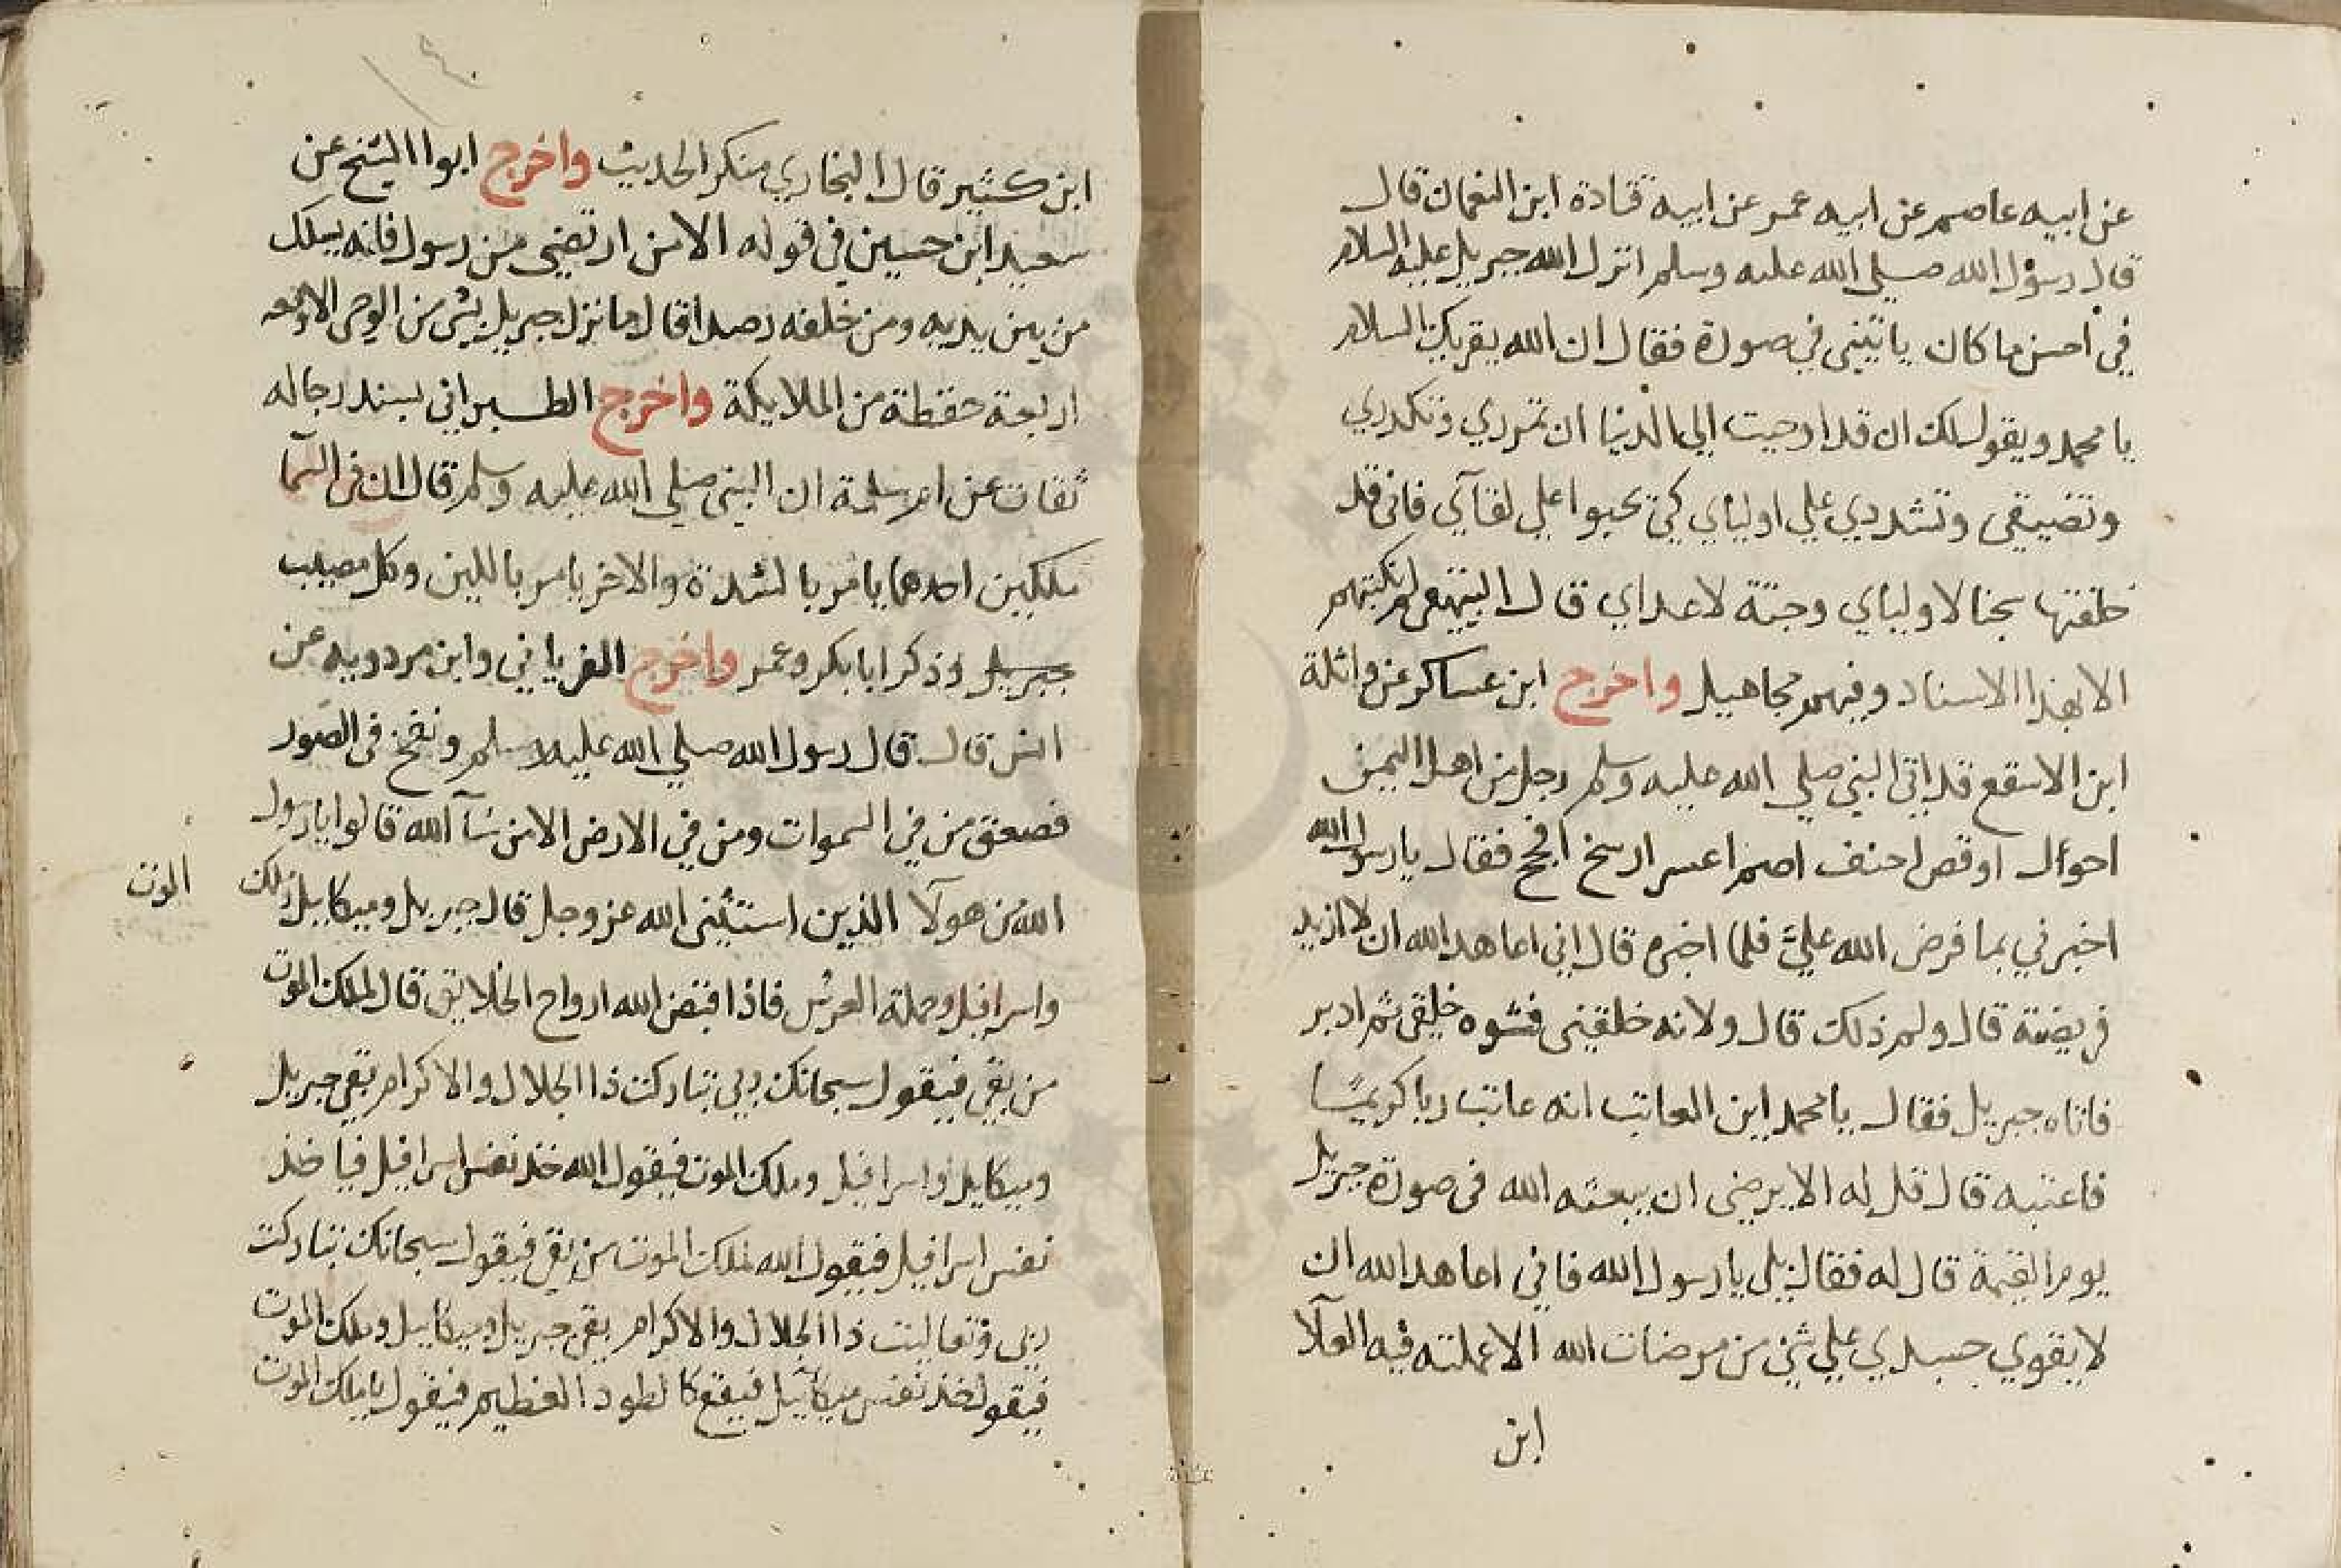 عن ابيه عاصم عن ابيه عمر عن ابيه قتادة ابن النعمان قال
قال رسول الله صلي الله عليه وسلم انزل الله جبريل عليه السلام
في احسن ما كان ياتيني في صورة فقال ان الله يقريك السلام
يا محمد ويقول لك ان قد اوحيت الي الدنيا ان تمرري وتكدري
وتضيقي وتشددي علي اوليآي كي يحبوا علي لقآي فاني قد
خلقتها سجنا لاوليآي وجنتة لاعداي قال البيهقي لم نكتبهم
الا بهذا الاسناد وفيهم مجاهيل واخرج ابن عساكر عن واثلة
ابن الاسقع قد اتي النبي صلي الله عليه وسلم رجل من اهل اليمن
احول اوقص احنف اصم اعسر ارسخ افحج فقال يا رسول الله
اخبرني بما فرض الله علي فلما اخبره قال اني اعاهد الله ان لا ازيد
فريضة قال ولم ذلك قال ولانه خلقني فشوه خلقي ثم ادبر
فاتاه جبريل فقال يا محمد اين المعاتب انه عاتب ربا كريما
فاعتبه قال قل له الا يرضي ان يبعثه الله في صورة جبريل
يوم القيمة قال له فقال بلي يا رسول الله فاني اعاهد الله ان
لا يقوي جسدي علي شي من مرضات الله الا عملته فيه العلآ
ابن
ابن كثير قال البخاري منكر الحديث واخرج ابوا الشيخ عن
سعيد ابن حسين في قوله الا من ارتضي من رسول فانه يسلك
من بين يديه ومن خلفه رصدا قال ما نزل جبريل بشي من الوحي الا ومعه
اربعة حفظة من الملايكة واخرج الطبراني بسند رجاله
ثقات عن ام سلمة ان النبي صلي الله عليه وسلم قال ان في السمآ
ملكين احدهما يامر بالشدة والاخر يامر باللين وكل مصيب
جبريل وذكر ابا بكر وعمر واخرج الفريابي وابن مردويه عن
انس قال قال رسول الله صلي الله عليه وسلم ونفخ في الصور
فصعق من في السموات ومن في الارض الا من شآ الله قالوا يا رسول
الله من هولآ الذين استثني الله عز وجل قال جبريل وميكايل وملك
الموت
واسرافيل وحملة العرش فاذا اقتض الله ارواح الخلايق قال لملك الموت
من بقي فيقول سبحانك ربي تباركت ذا الجلال والاكرام بقي جبريل
وميكايل واسرافيل وملك الموت فيقول الله خذ نفس اسرافيل فياخذ
نفس اسرافيل فيقول الله لملك الموت من بقي فيقول سبحانك تباركت
ربي وتعاليت ذا الجلال والاكرام بقي جبريل وميكاييل وملك الموت
فيقول خذ نفس ميكائيل فيقع كالطود العظيم فيقول يا ملك الموت